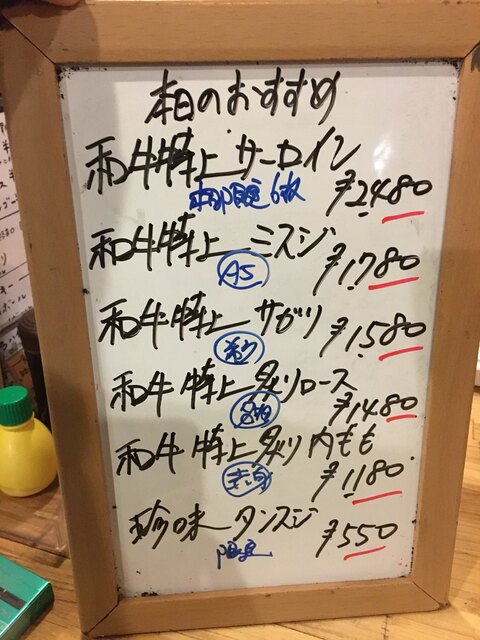 本日のおすすめ
和牛特上サーロイン
限定6枚 ¥2480
和牛特上ミスジ
A5 ¥1780
和牛特上サガリ
¥1580
和牛特上炙りロース
¥1480
和牛特上炙り内もも
赤身 ¥1180
珍味タンスジ
限定 ¥550